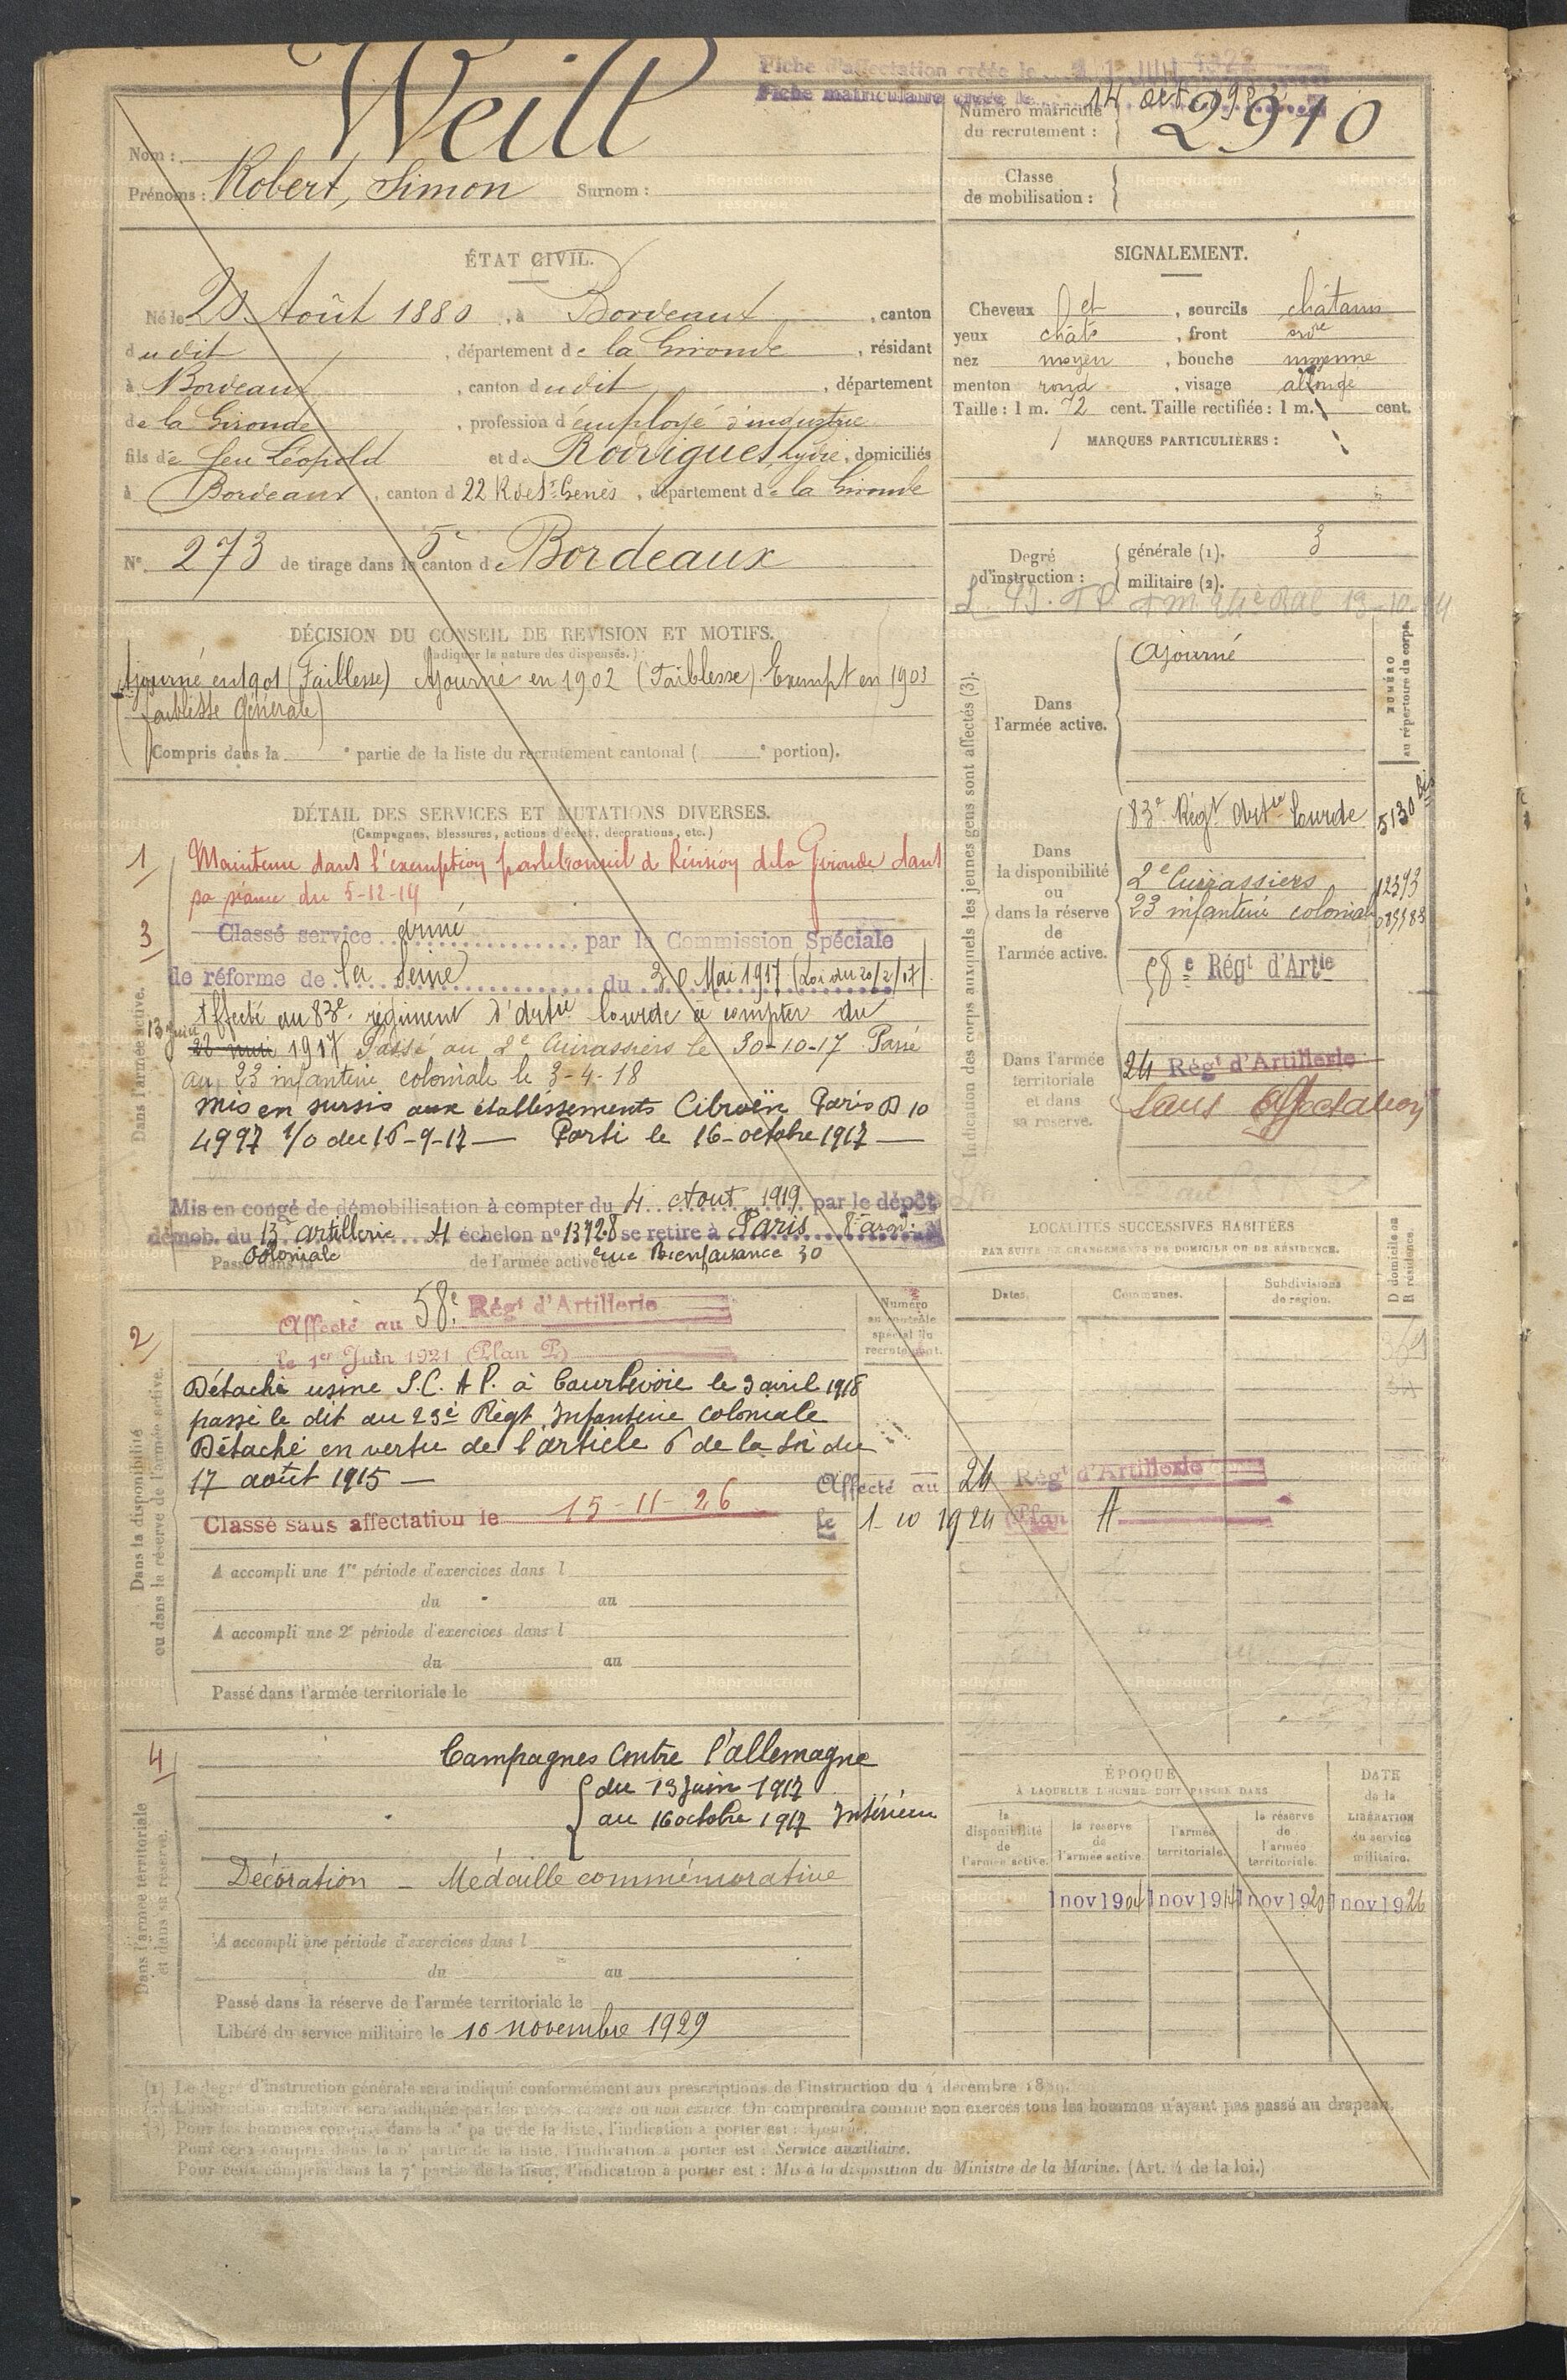 Fiche d'affectation créée le
Fiche matriculaire créée le 14 oct
Nom : Weill
Prénoms : Robert, Simon Surnom :
Numéro matricule du recrutement : 2910
Classe de mobilisation :
ÉTAT CIVIL.
Né le 20 Août 1880, à Bordeaux, canton
dudit, département de la Gironde, résidant
à Bordeaux, canton dudit, département
de la Gironde, profession d'employé d'industrie
fils de feu Léopold et de Rodrigues Lydie, domiciliés
à Bordeaux, canton d 22 R de St Genès, département de la Gironde
N° 273 de tirage dans le 5e canton de Bordeaux
SIGNALEMENT.
Cheveux et, sourcils châtains
yeux chât, front ordre
nez moyen, bouche moyenne
menton rond, visage allongé
Taille : 1 m. 72 cent. Taille rectifiée : 1 m. cent.
MARQUES PARTICULIÈRES :
Degré d'instruction : générale (1). 3
militaire (2).
DÉCISION DU CONSEIL DE REVISION ET MOTIFS.
(Indiquer la nature des dispenses.)
Ajourné en 1901 (Faiblesse) Ajourné en 1902 (Faiblesse). Exempt en 1903
(faiblesse Générale)
Compris dans la e partie de la liste du recrutement cantonal ( e portion).
DÉTAIL DES SERVICES ET MUTATIONS DIVERSES.
(Campagnes, blessures, actions d'éclat, décorations, etc.)
Dans l'armée active.
1/ Maintenu dans l'exemption par le conseil de Révision de la Gironde dans
sa séance du 5-12-14
3 Classé service armé par la Commission Spéciale
de réforme de la Seine du 30 Mai 1917 (Loi du 20/2/17)
Affecté au 83e régiment d'artie lourde à compter du
13 juin 1917 Passé au 2e Cuirassiers le 30-10-17 Passé
au 23 infanterie coloniale le 3-4-18
mis en sursis aux établissements Citroën Paris D 10
4997 1/0 du 16-9-17 — Parti le 16 octobre 1917 —
Mis en congé de démobilisation à compter du 4 Aout 1919 par le dépôt
démob. du 13e artillerie 4 échelon n° 13728 se retire à Paris 8e arond.
Coloniale rue Bienfaisance 30
Passé dans la de l'armée active le
Dans la disponibilité ou dans la réserve de l'armée active.
2/ Affecté au 58e Régt d'Artillerie
le 1er Juin 1921 (Plan P)
Numéro au contrôle spécial du recrutement.
Détaché usine S.C.A.P. à Courbevoie le 3 avril 1918
passé le dit au 23e Régt Infanterie coloniale
Détaché en vertu de l'article 6 de la loi du
17 août 1915 —
Classé sans affectation le 15-11-26
Affecté au 24 Régt d'Artillerie
le 1-10 1924 Plan A
A accompli une 1re période d'exercices dans l
du au
A accompli une 2e période d'exercices dans l
du au
Passé dans l'armée territoriale le
Dans l'armée territoriale et dans sa réserve.
4 Campagnes contre l'allemagne
du 13 Juin 1917
au 16 octobre 1917 Intérieur
Décoration — Médaille commémorative
A accompli une période d'exercices dans l
du au
Passé dans la réserve de l'armée territoriale le
Libéré du service militaire le 10 novembre 1929
Indication des corps auxquels les jeunes gens sont affectés (3).
NUMÉRO au répertoire du corps.
Dans l'armée active. Ajourné
Dans la disponibilité ou dans la réserve de l'armée active.
83e Régt Artie Lourde 5130 bis
2e Cuirassiers
23 infanterie coloniale
58e Régt d'Artie
Dans l'armée territoriale et dans sa réserve.
24 Régt d'Artillerie
Sans Affectation
LOCALITÉS SUCCESSIVES HABITÉES
PAR SUITE DE CHANGEMENTS DE DOMICILE OU DE RÉSIDENCE.
Dates. Communes. Subdivisions de région. D domicile ou R résidence.
ÉPOQUE
À LAQUELLE L'HOMME DOIT PASSER DANS
DATE de la LIBÉRATION du service militaire.
la disponibilité de l'armée active. la réserve de l'armée active. l'armée territoriale. la réserve de l'armée territoriale.
1 nov 1904 1 nov 1914 1 nov 1920 1 nov 1926
(1) Le degré d'instruction générale sera indiqué conformément aux prescriptions de l'instruction du 4 décembre
(2) L'instruction militaire sera indiquée par les mots exercé ou non exercé. On comprendra comme non exercés tous les hommes n'ayant pas passé au drapeau.
(3) Pour les hommes compris dans la partie de la liste, l'indication à porter est : Ajourné.
Pour ceux compris dans la partie de la liste, l'indication à porter est : Service auxiliaire.
Pour ceux compris dans la 7e partie de la liste, l'indication à porter est : Mis à la disposition du Ministre de la Marine. (Art. 4 de la loi.)